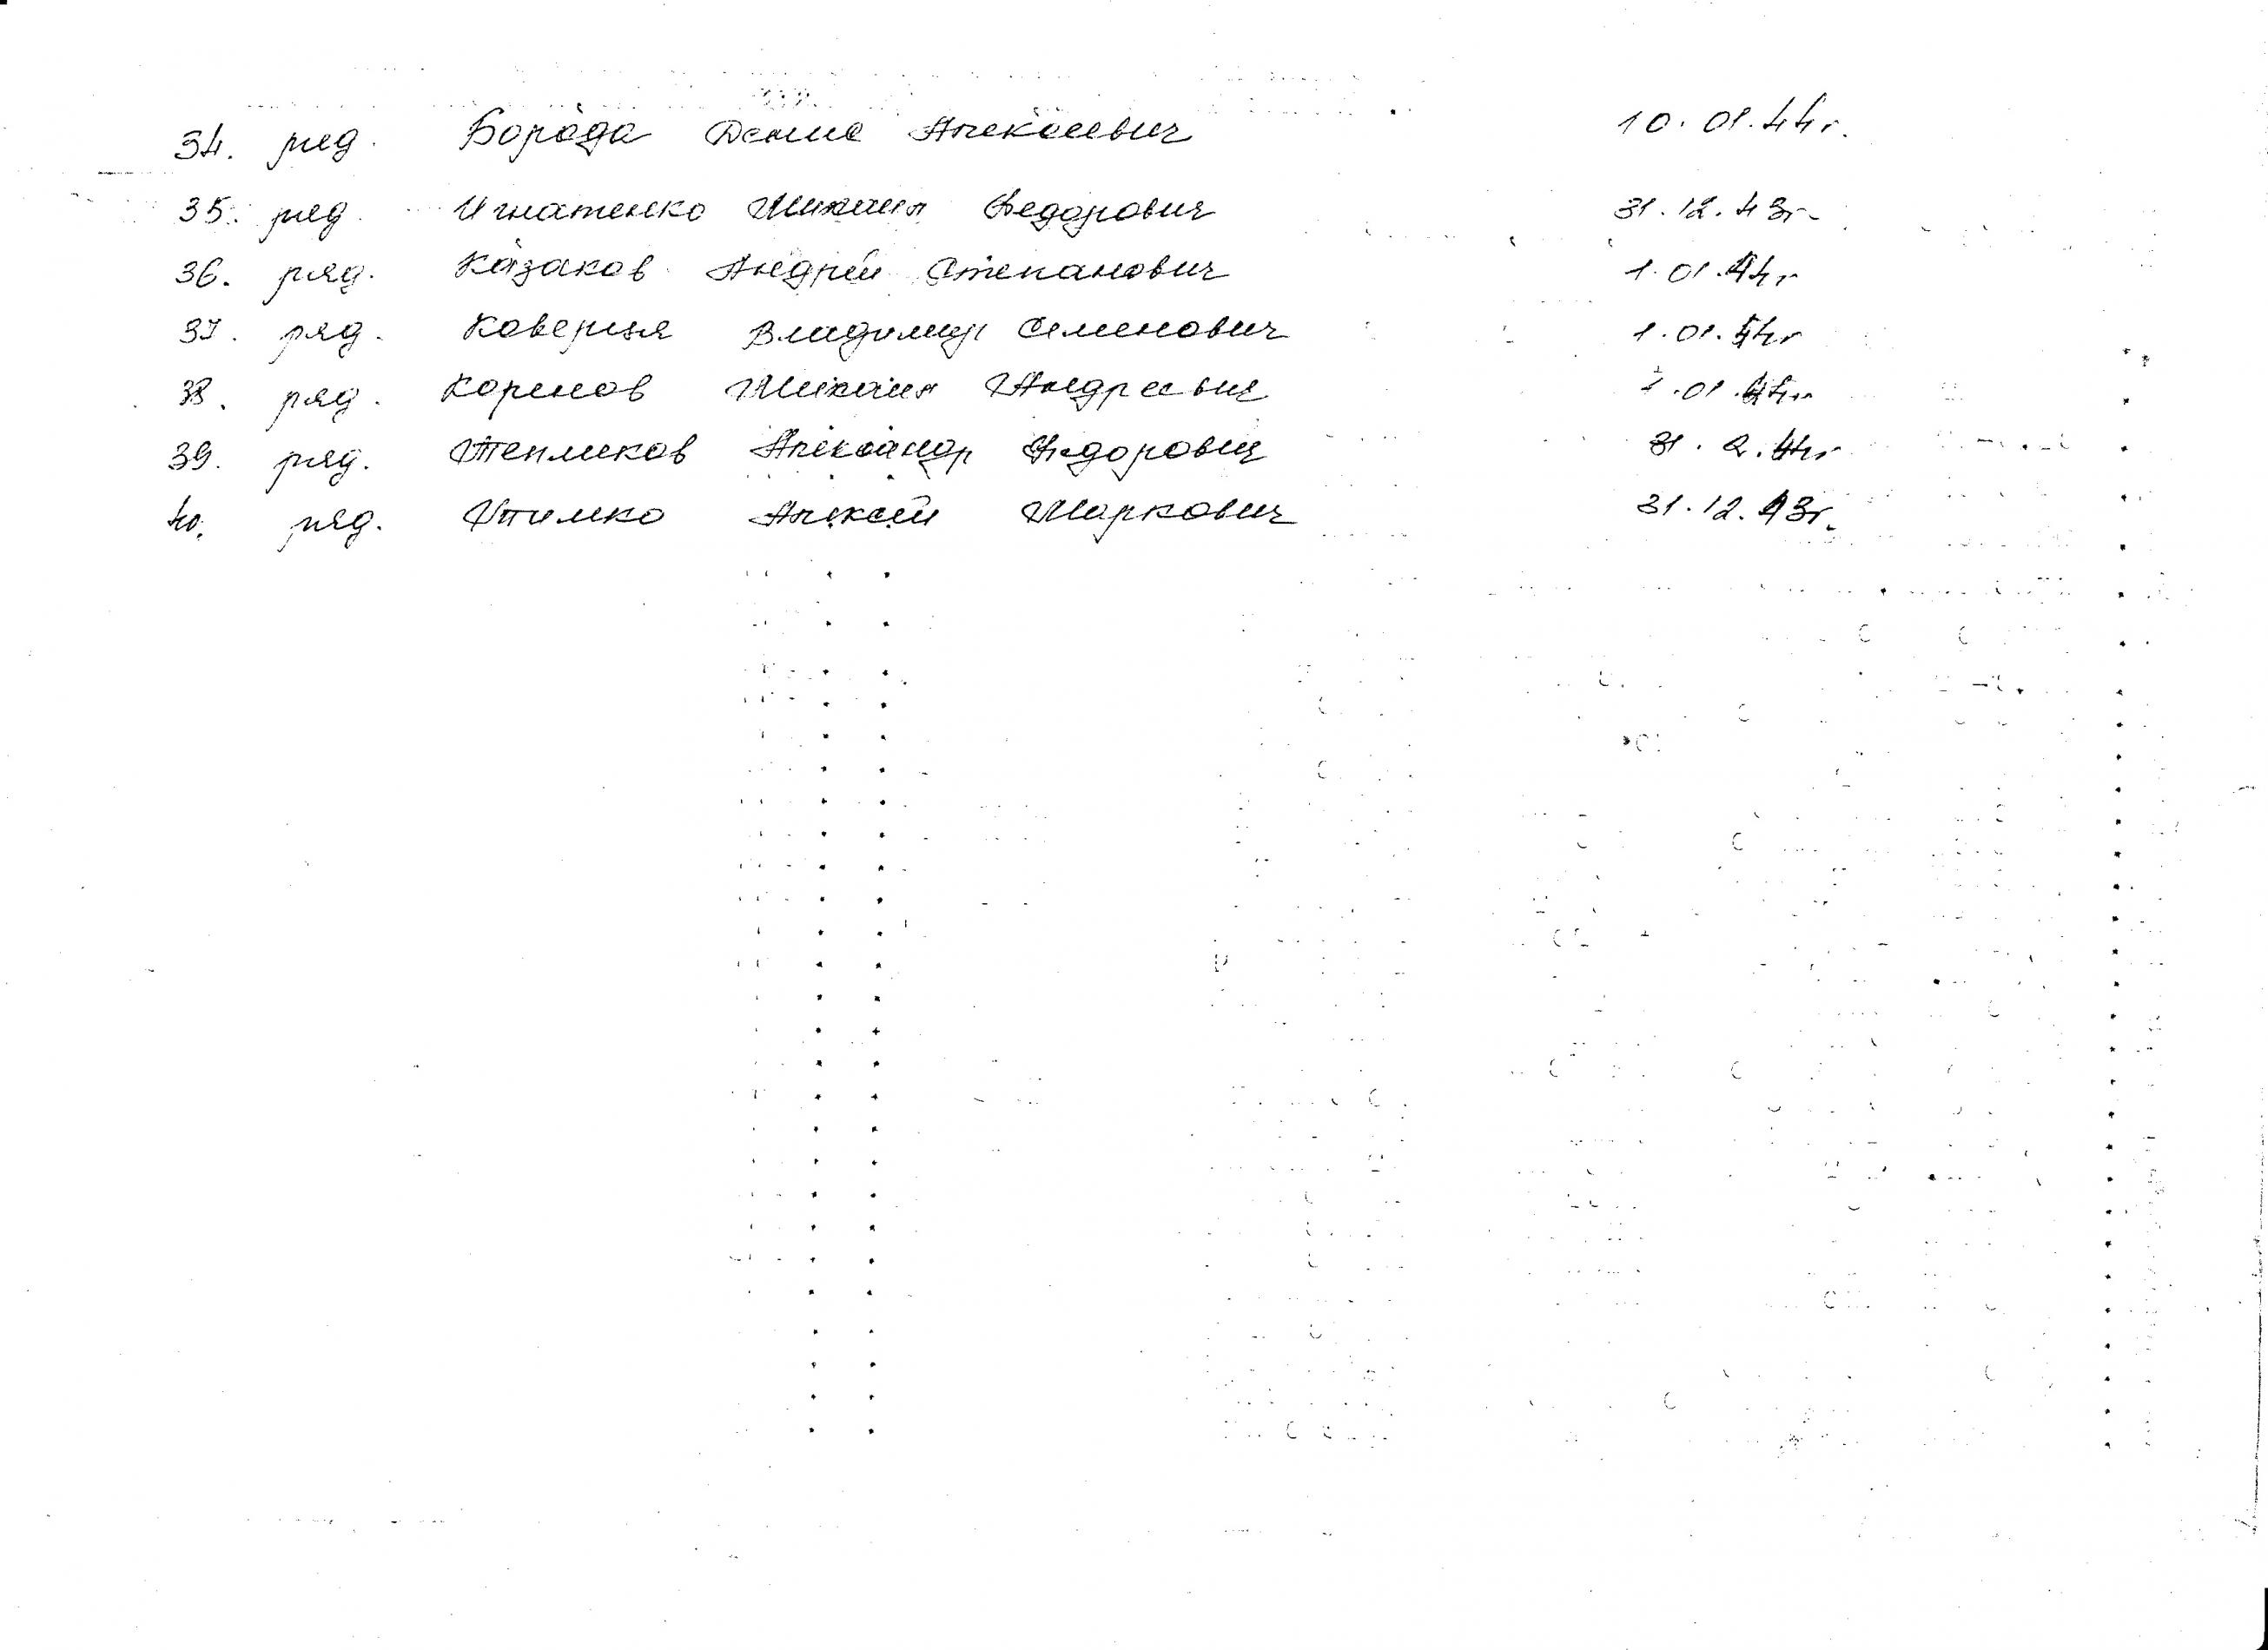 34. ряд. Борода Денис Алексеевич 10.01.44г.
35. ряд. Игнатенко Михаил Федорович 31.12.43г.
36. ряд. Казаков Андрей Степанович 1.01.44г
37. ряд. Каверня Владимир Семенович 1.01.44г
38. ряд. Коренов Михаил Андреевич 1.01.44г
39. ряд. Тепляков Александр Федорович 31.2.44г
40. ряд. Тимко Алексей Маркович 31.12.43г.